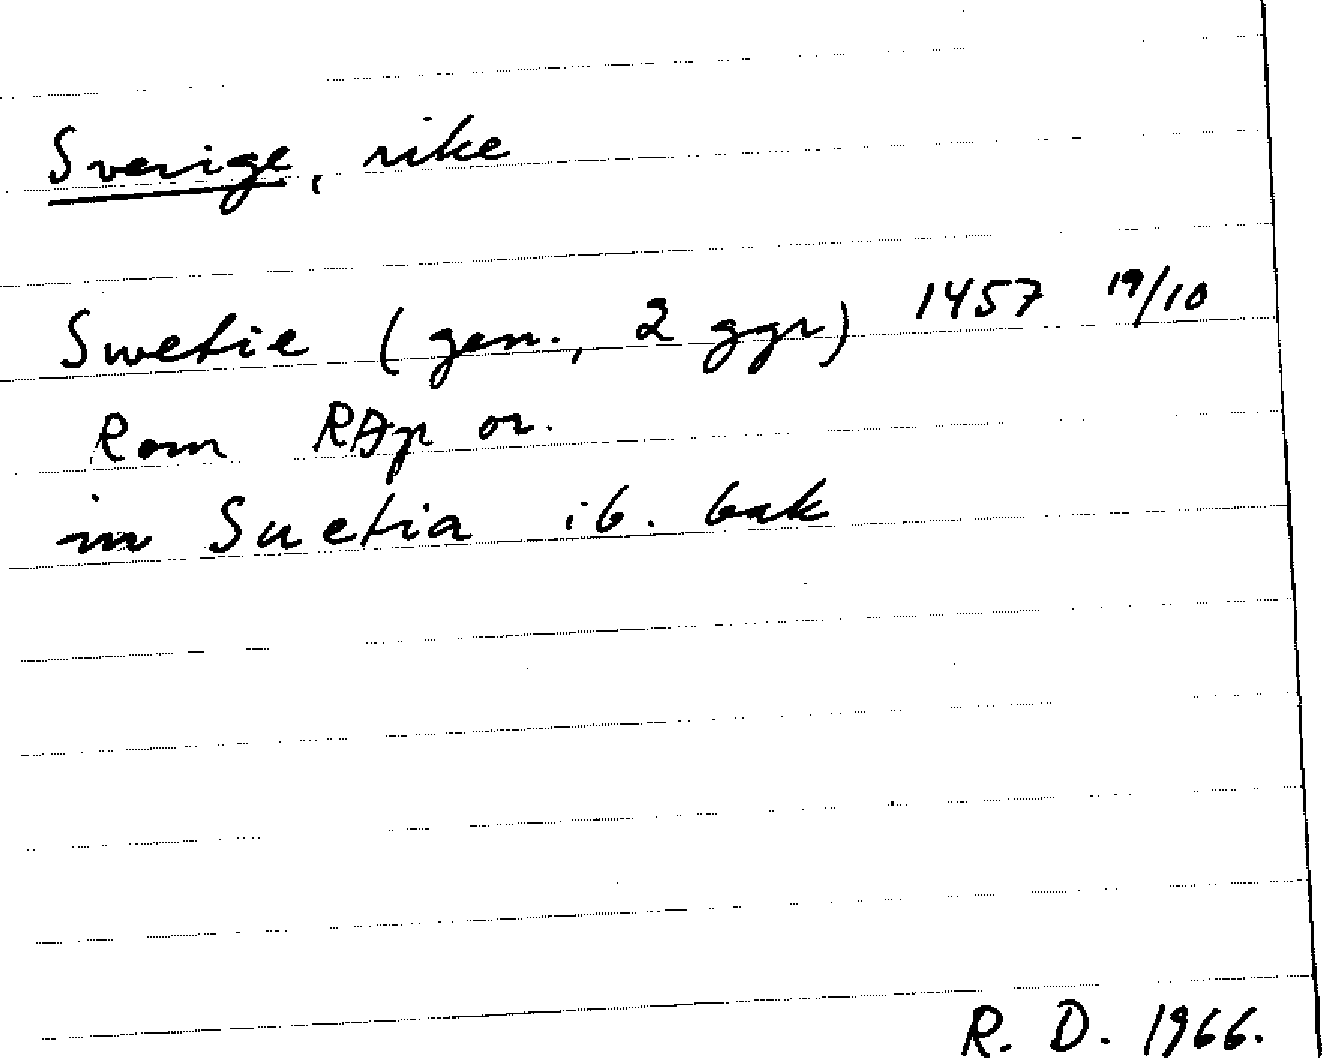 Sverige, rike
Swetie (gen., 2 ggr) 1457 19/10
Rom RAp or.
in Suetia ib. bak
R. D. 1966.